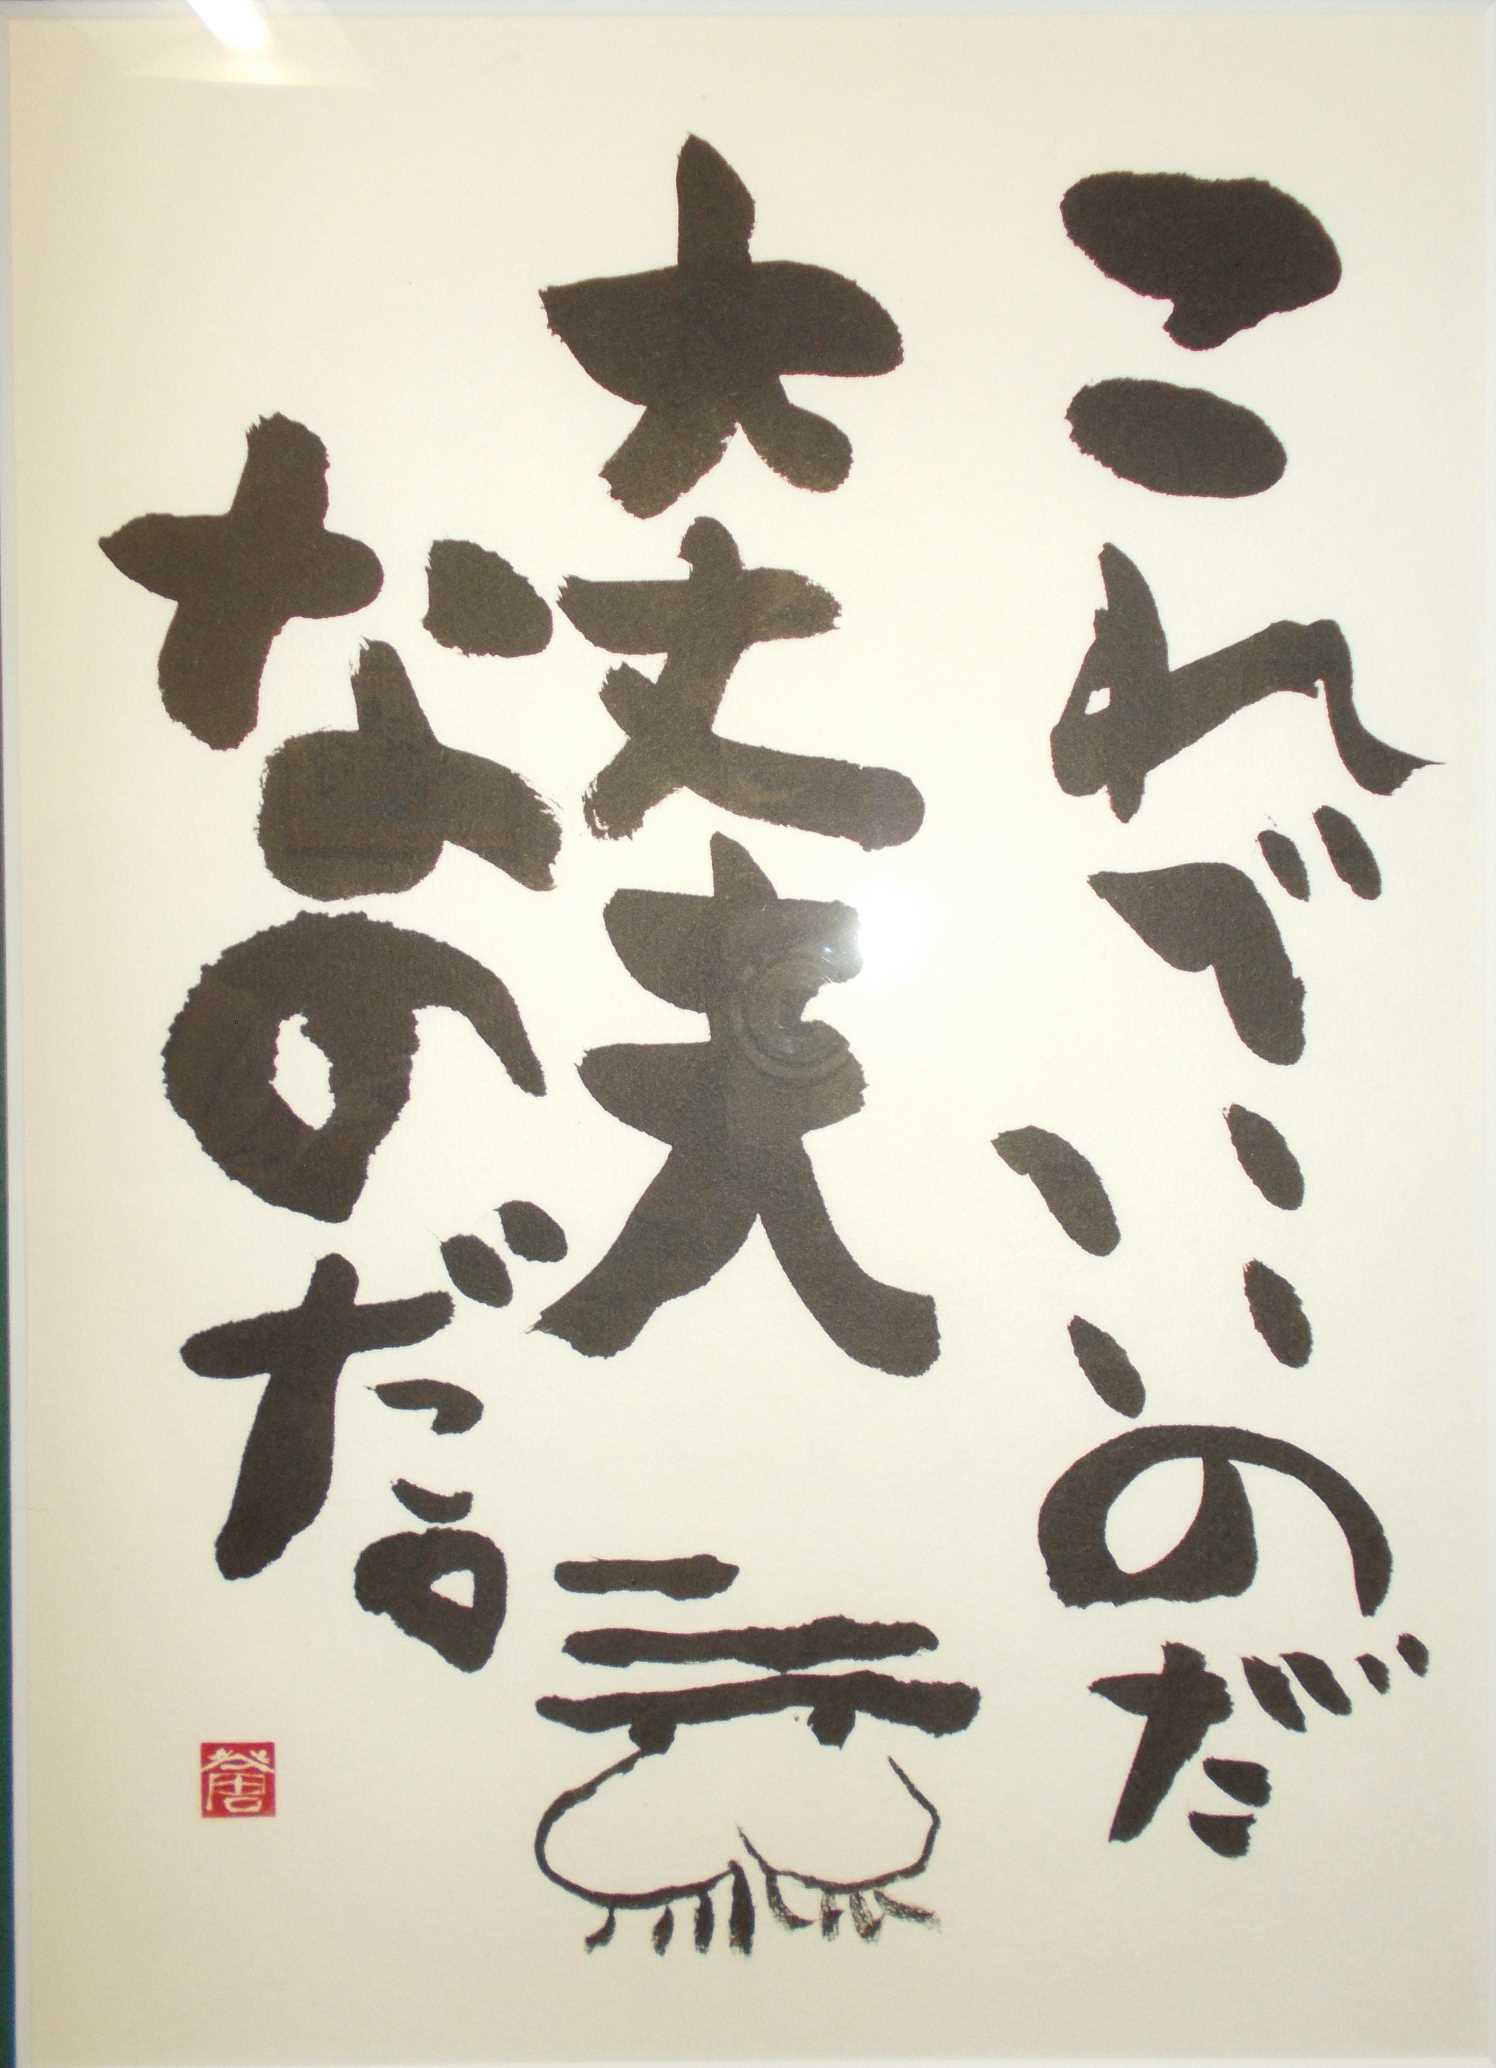 これでいいのだ
大丈夫
なのだ。